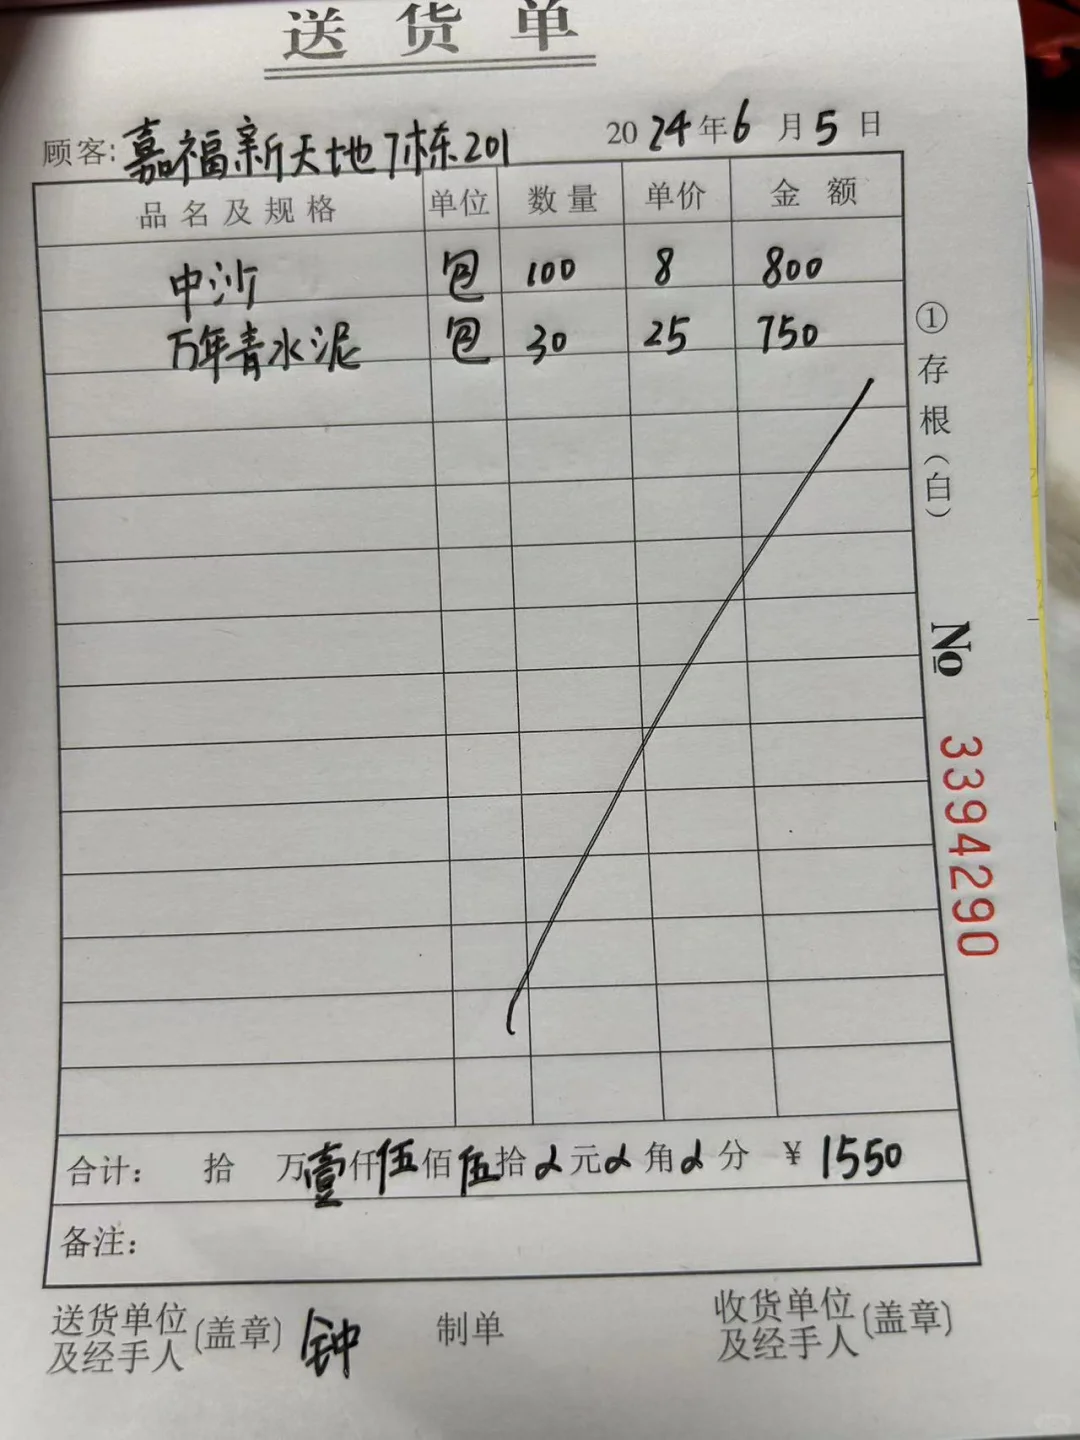 送货单
顾客: 嘉福新天地7栋201 2024年6月5日
品名及规格 单位 数量 单价 金额
中沙 包 100 8 800
万年青水泥 包 30 25 750
①存根(白)
№ 3394290
合计: 拾 万壹仟伍佰伍拾 元 角 分 ¥ 1550
备注:
送货单位及经手人(盖章) 钟 制单 收货单位及经手人(盖章)